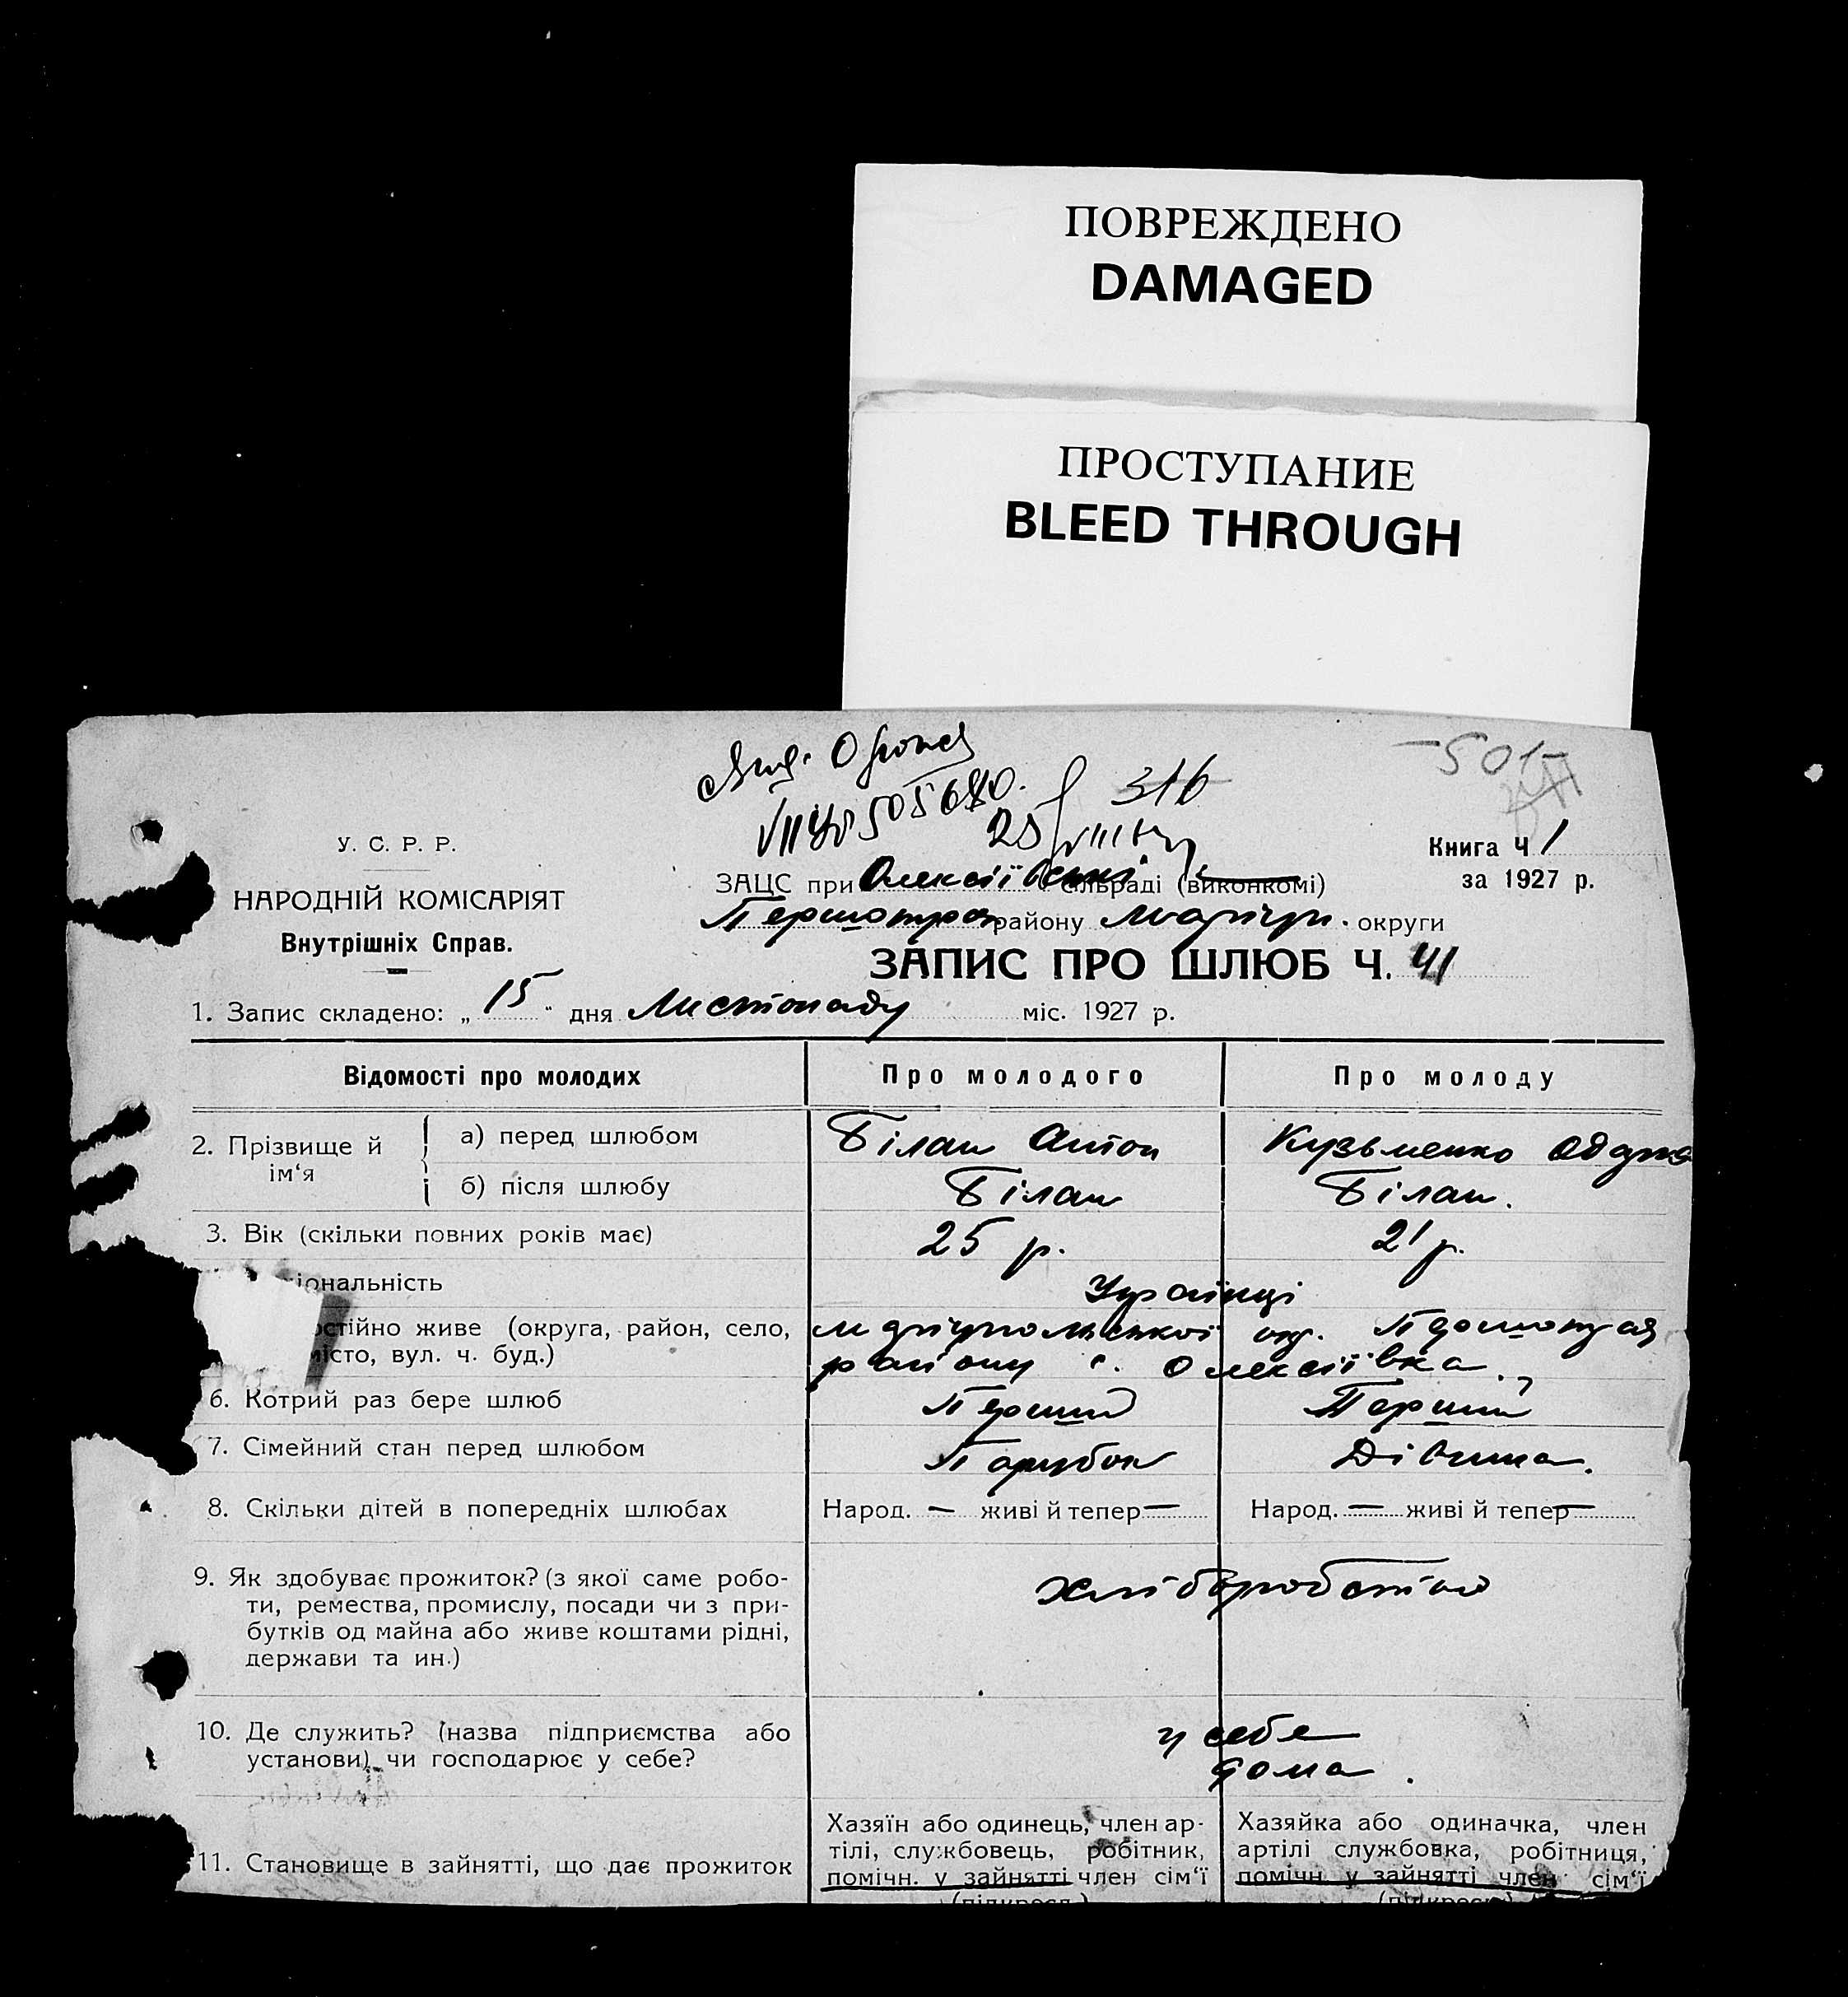 ПОВРЕЖДЕНО
DAMAGED
ПРОСТУПАНИЕ
BLEED THROUGH
501
316
У. С. Р. Р.
НАРОДНІЙ КОМІСАРІЯТ
Внутрішніх Справ.
Книга Ч 1
за 1927 р.
ЗАЦС при Олексіївські сільраді (виконкомі)
Першотрав району Маріуп. округи
ЗАПИС ПРО ШЛЮБ Ч. 41
1. Запис складено: „ 15 " дня Листопаду міс. 1927 р.
Відомості про молодих Про молодого Про молоду
2. Прізвище й ім'я
а) перед шлюбом Білан Антон Кузьменко
б) після шлюбу Білан Білан.
3. Вік (скільки повних років має) 25 р. 21 р.
іональність Українці
стійно живе (округа, район, село, місто, вул. ч. буд.)
Маріупольської окр. Першотрав
району с. Олексіївка.
6. Котрий раз бере шлюб Перший Перший
7. Сімейний стан перед шлюбом Парубок Дівчина.
8. Скільки дітей в попередніх шлюбах Народ. — живі й тепер — Народ. — живі й тепер —
9. Як здобуває прожиток? (з якої саме робо-
ти, ремества, промислу, посади чи з при-
бутків од майна або живе коштами рідні,
держави та ин.)
хліборобство
10. Де служить? (назва підприємства або
установи) чи господарює у себе?
у себе
дома.
11. Становище в зайнятті, що дає прожиток
Хазяїн або одинець, член ар-
тілі, службовець, робітник,
помічн. у зайнятті член сім'ї
(підкресл.)
Хазяйка або одиначка, член
артілі службовка, робітниця,
помічн. у зайнятті член сім'ї
(підкресл.)